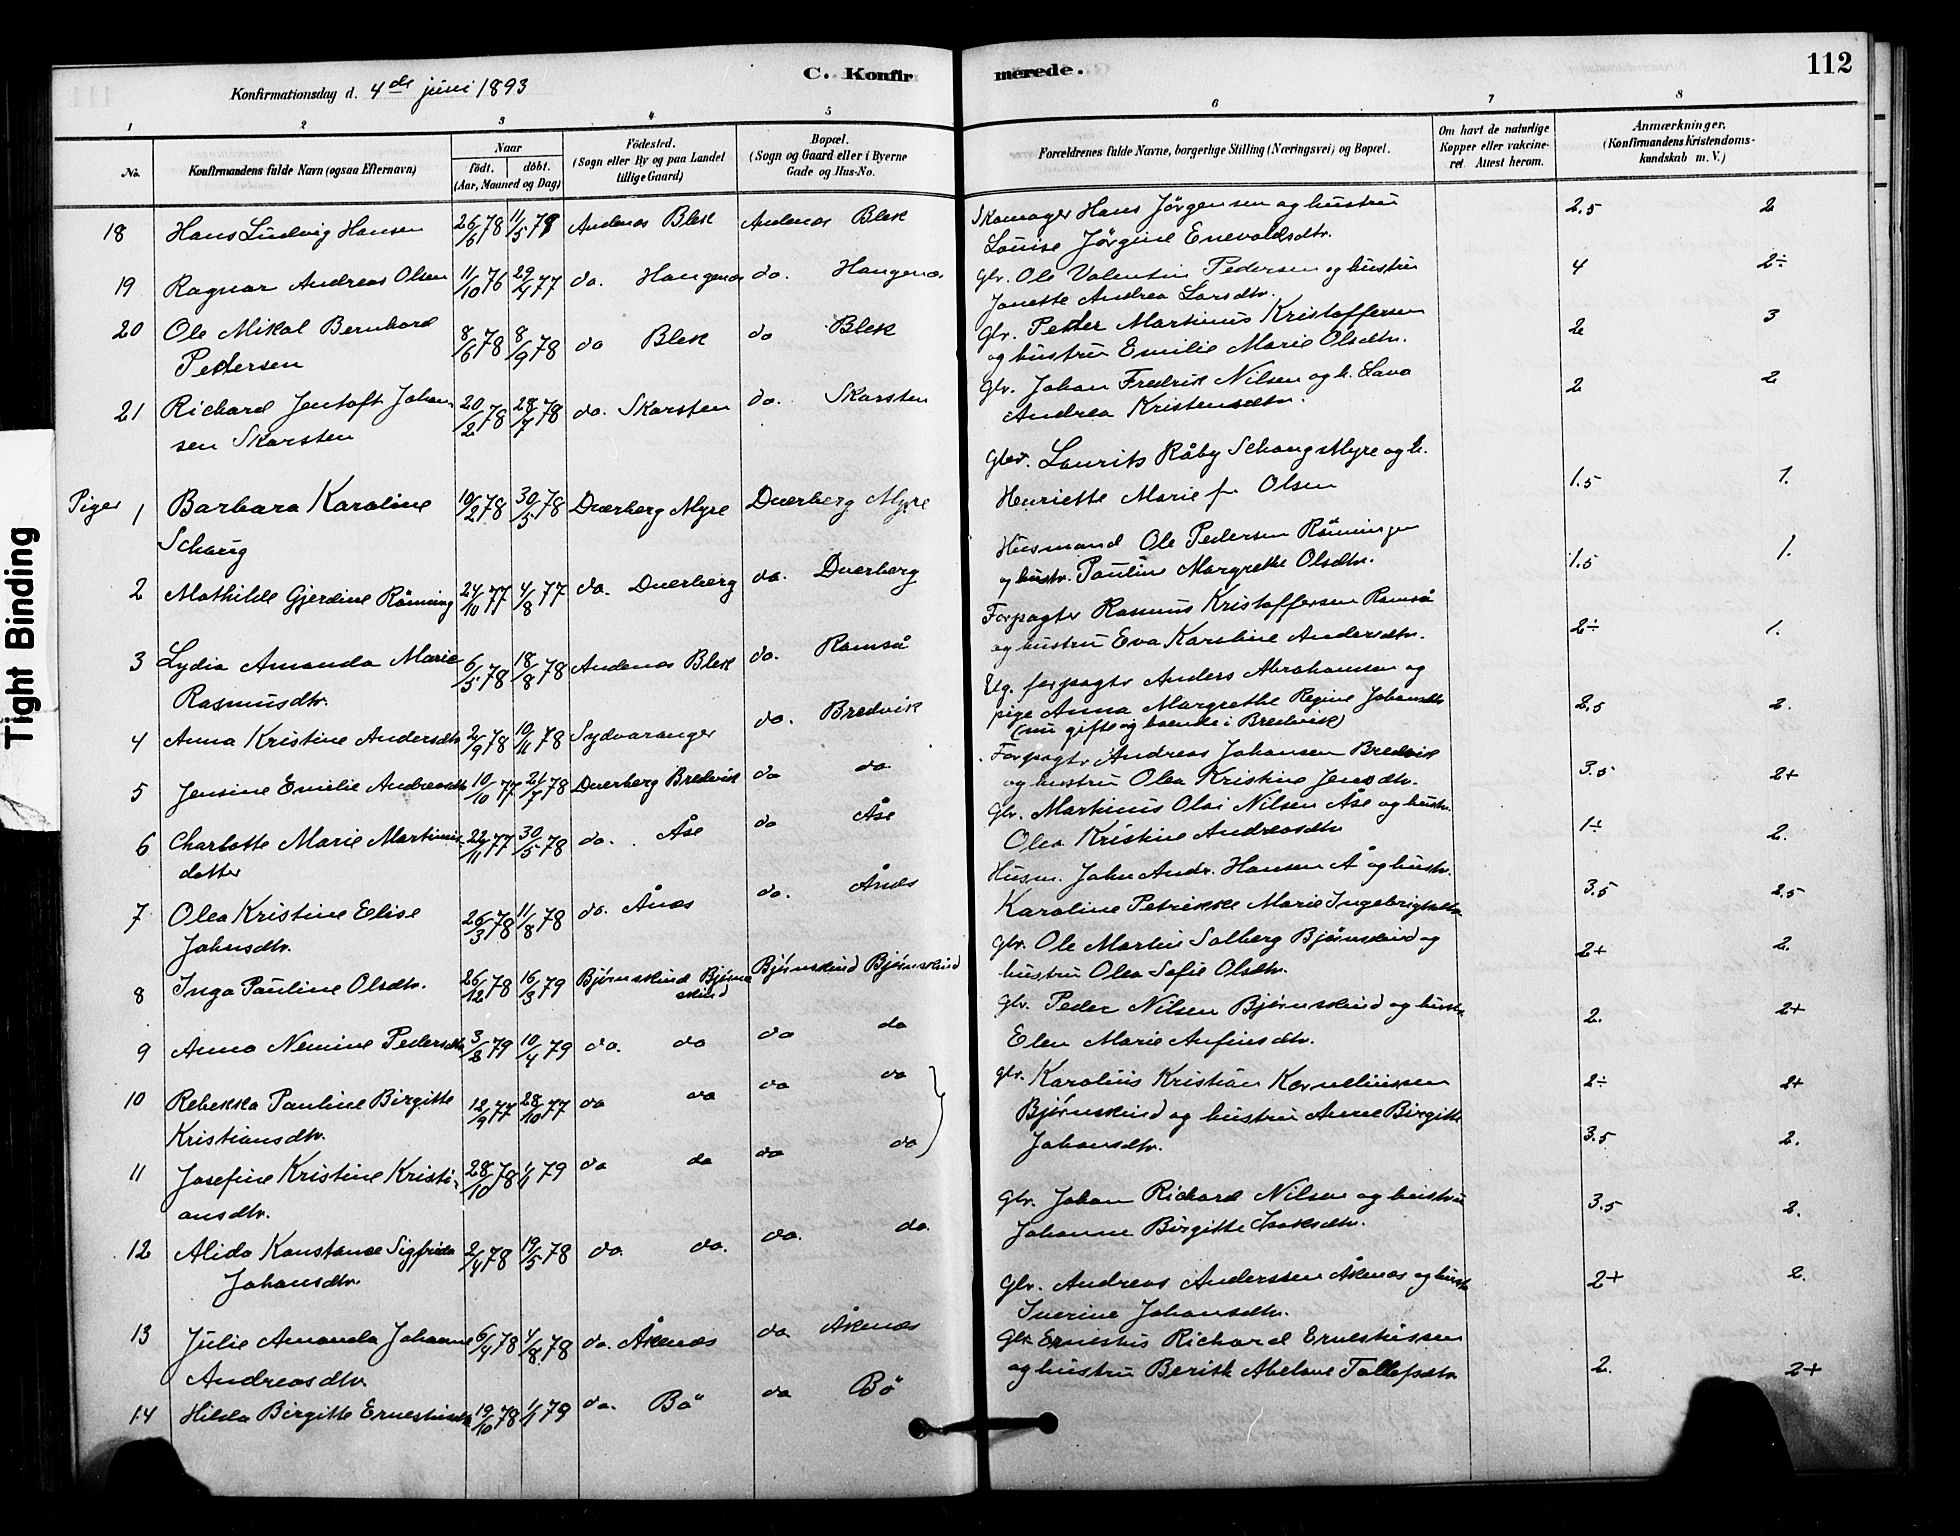 C. Konfirmerede.
112
Konfirmationsdag d. 4de juni 1893
1 2 3 4 5 6 7 8
No.
Konfirmandens fulde Navn (ogsaa Efternavn)
Naar
födt. döbt.
(Aar, Maaned og Dag)
Födested.
(Sogn eller By og paa Landet
tillige Gaard)
Bopæl.
(Sogn og Gaard eller i Byerne
Gade og Hus-No.
Forældrenes fulde Navne, borgerlige Stilling (Næringsvei) og Bopæl.
Om havt de naturlige
Kopper eller vakcineret. Attest herom.
Anmærkninger.
(Konfirmandens Kristendomskundskab m. V.)
18 Hans Ludvig Hansen 26/6 78 11/5 79 Andenæs Blek Andenæs Blek Skomager Hans Jörgensen og hustru 2.5 2
Louise Jörgine Enevoldsdtr.
19 Ragnar Andreas Olsen 11/10 76 29/4 77 do. Haugenæs do. Haugenæs Gbr. Ole Valentin Pedersen og hustru 4 2÷
Janette Andrea Larsdtr.
20 Ole Mikal Bernhard 8/6 78 8/9 78 do Blek do Blek Gbr. Petter Martinus Kristoffersen 2 3
Pettersen og hustru Emilie Marie Olsdtr.
21 Richard Jentoft Johan- 20/2 78 28/7 78 do. Skarsten do. Skarsten Gbr. Johan Fredrik Nilsen og h. Lava 2 2
sen Skarsten Andrea Kristensdtr.
Piger 1 Barbara Karoline 10/2 78 30/5 78 Dverberg Myre Dverberg Myre Gbr. Laurits Råby Schaug Myre og h. 1.5 1.
Schaug Henriette Marie f. Olsen
2 Mathilde Gjerdine Rönning 24/10 77 4/8 77 do. Dverberg do. Dverberg Husmand Ole Pedersen Rönningen 1.5 1.
og hustr. Pauline Margrethe Olsdtr.
3 Lydia Amanda Marie 6/5 78 18/8 78 Andenæs Blek do. Ramså Forpagter Rasmus Kristoffersen Ramså 2÷ 1.
Rasmusdtr. og hustru Eva Karoline Andersdtr.
4 Anna Kristine Andersdtr 2/9 78 10/11 78 Sydvaranger do. Bredvik Ug. forpagtr Anders Abrahamsen og 2.5 2.
pige Anna Margrethe Regine Johansdtr
(nu gifte og boende i Bredvik)
5 Jensine Emilie Andreasdtr 10/10 77 21/7 78 Dverberg Bredvik do do Forpagtr Andreas Johansen Bredvik 3.5 2+
og hustru Olea Kristine Jensdtr.
6 Charlotte Marie Martinus- 22/11 77 30/5 78 do. Åse do Åse Gbr. Martinus Olai Nilsen Åse og hustr. 1÷ 2.
datter Olea Kristine Andreasdtr
7 Olea Kristine Elise 26/3 78 11/8 78 do. Ånes do. Ånes Husm. John Andr. Hansen Å og hustr. 3.5 2.5
Johnsdtr. Karoline Petrikke Marie Ingebrigtsdtr
8 Inga Pauline Olsdtr. 26/12 78 16/3 79 Bjørnskind Bjørnskind Bjørnskind Bjørnskind Gbr. Ole Martin Solberg Bjørnskind og 2+ 2.
hustru Olea Sofie Olsdtr.
9 Anna Nemine Pedersdtr 3/2 79 10/4 79 do. do do do Gbr. Peder Nilsen Bjørnskind og hustr. 2. 2+
Elen Marie Anfinsdtr.
10 Rebekka Pauline Birgitte 12/9 77 28/10 77 do do do do Gbr. Karolius Kristian Korneliussen 2÷ 2+
Kristiansdtr. Bjørnskind og hustru Anne Birgitte
11 Josefine Kristine Kristi- 28/10 78 1/1 79 do do do do Johansdtr. 3.5 2.
ansdtr.
12 Alida Konstanse Sigfrida 2/4 78 19/5 78 do. do. do. do. Gbr. Johan Richard Nilsen og hustru 3.5 2.
Johansdtr. Johanne Birgitte Isaksdtr.
13 Julie Amanda Johanne 6/4 78 4/8 78 do. Åkenæs do Åkenæs Gbr. Andreas Anderssen Åkenæs og hustr. 2+ 2.
Andreasdtr. Inerine Johansdtr.
14 Hilda Birgitte Ernestusdtr 19/10 78 1/1 79 do. Bö do Bö Gbr. Ernestus Richard Ernestussen 2. 2+
og hustru Berith Abelone Tollefsdtr
Tight Binding